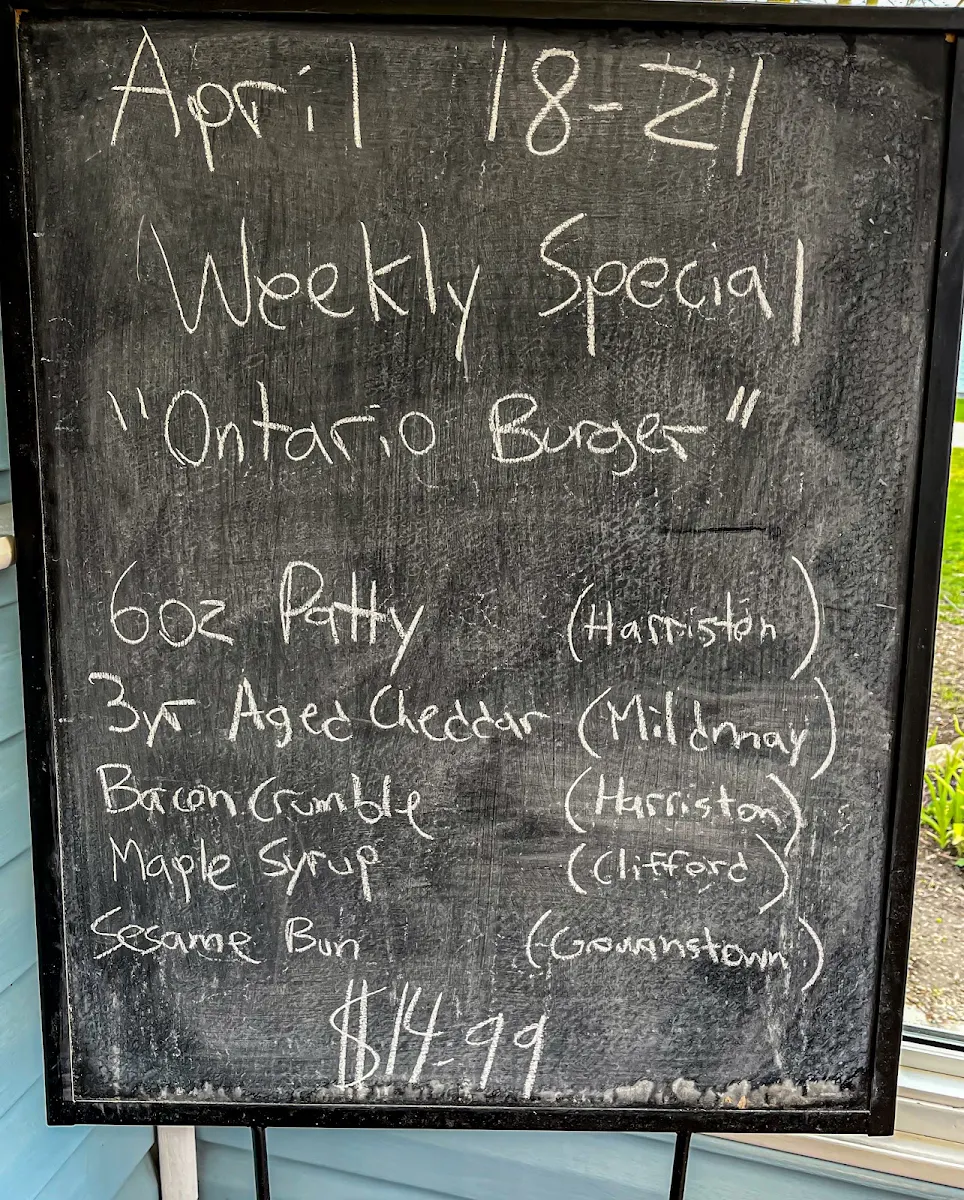 April 18-21
Weekly Special
"Ontario Burger"
6oz Patty (Harriston)
3yr Aged Cheddar (Mildmay)
Bacon Crumble (Harriston)
Maple Syrup (Clifford)
Sesame Bun (Gowanstown)
$14.99